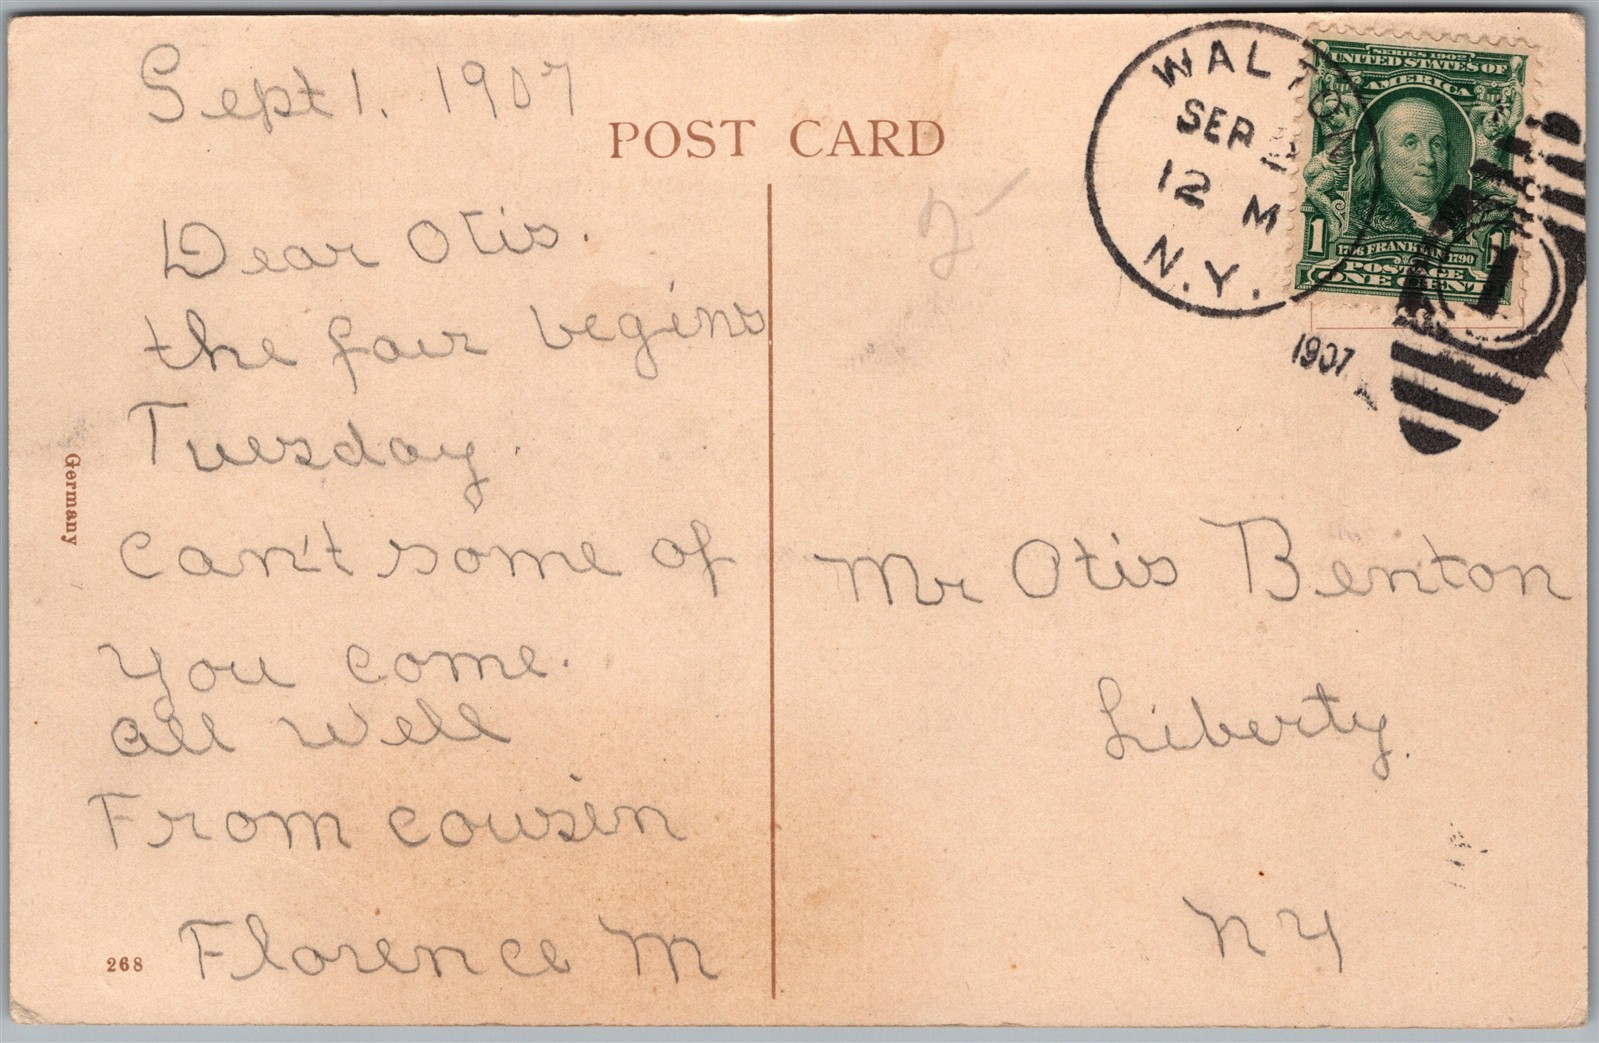 Sept 1. 1907
POST CARD
Dear Otis.
the fair begins
Tuesday.
can't some of
you come.
all well
From cousin
Florence M
268
Germany
WALTON
SEP
12 M
N.Y.
1907
SERIES 1902
UNITED STATES OF
AMERICA
1 1
1706 FRANKLIN 1790
POSTAGE
ONE CENT
2
Mr Otis Benton
Liberty.
N Y